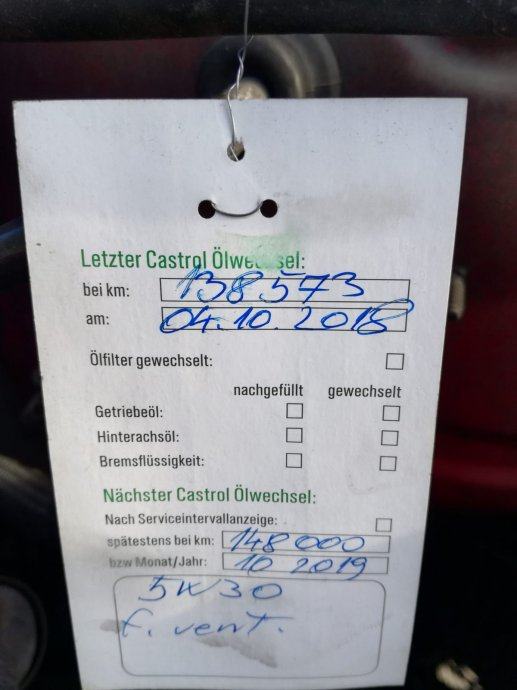 Letzter Castrol Ölwechsel:
bei km: 138.573
am: 04.10.2018
Ölfilter gewechselt:
nachgefüllt gewechselt
Getriebeöl:
Hinterachsöl:
Bremsflüssigkeit:
Nächster Castrol Ölwechsel:
Nach Serviceintervallanzeige:
spätestens bei km: 148000
bzw Monat/Jahr: 10 2019
5W30
f. vent.